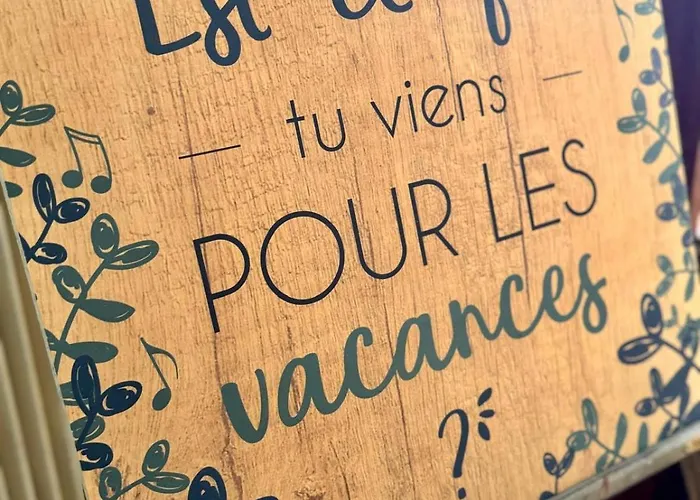 Est-ce que
tu viens
POUR LES
vacances
?